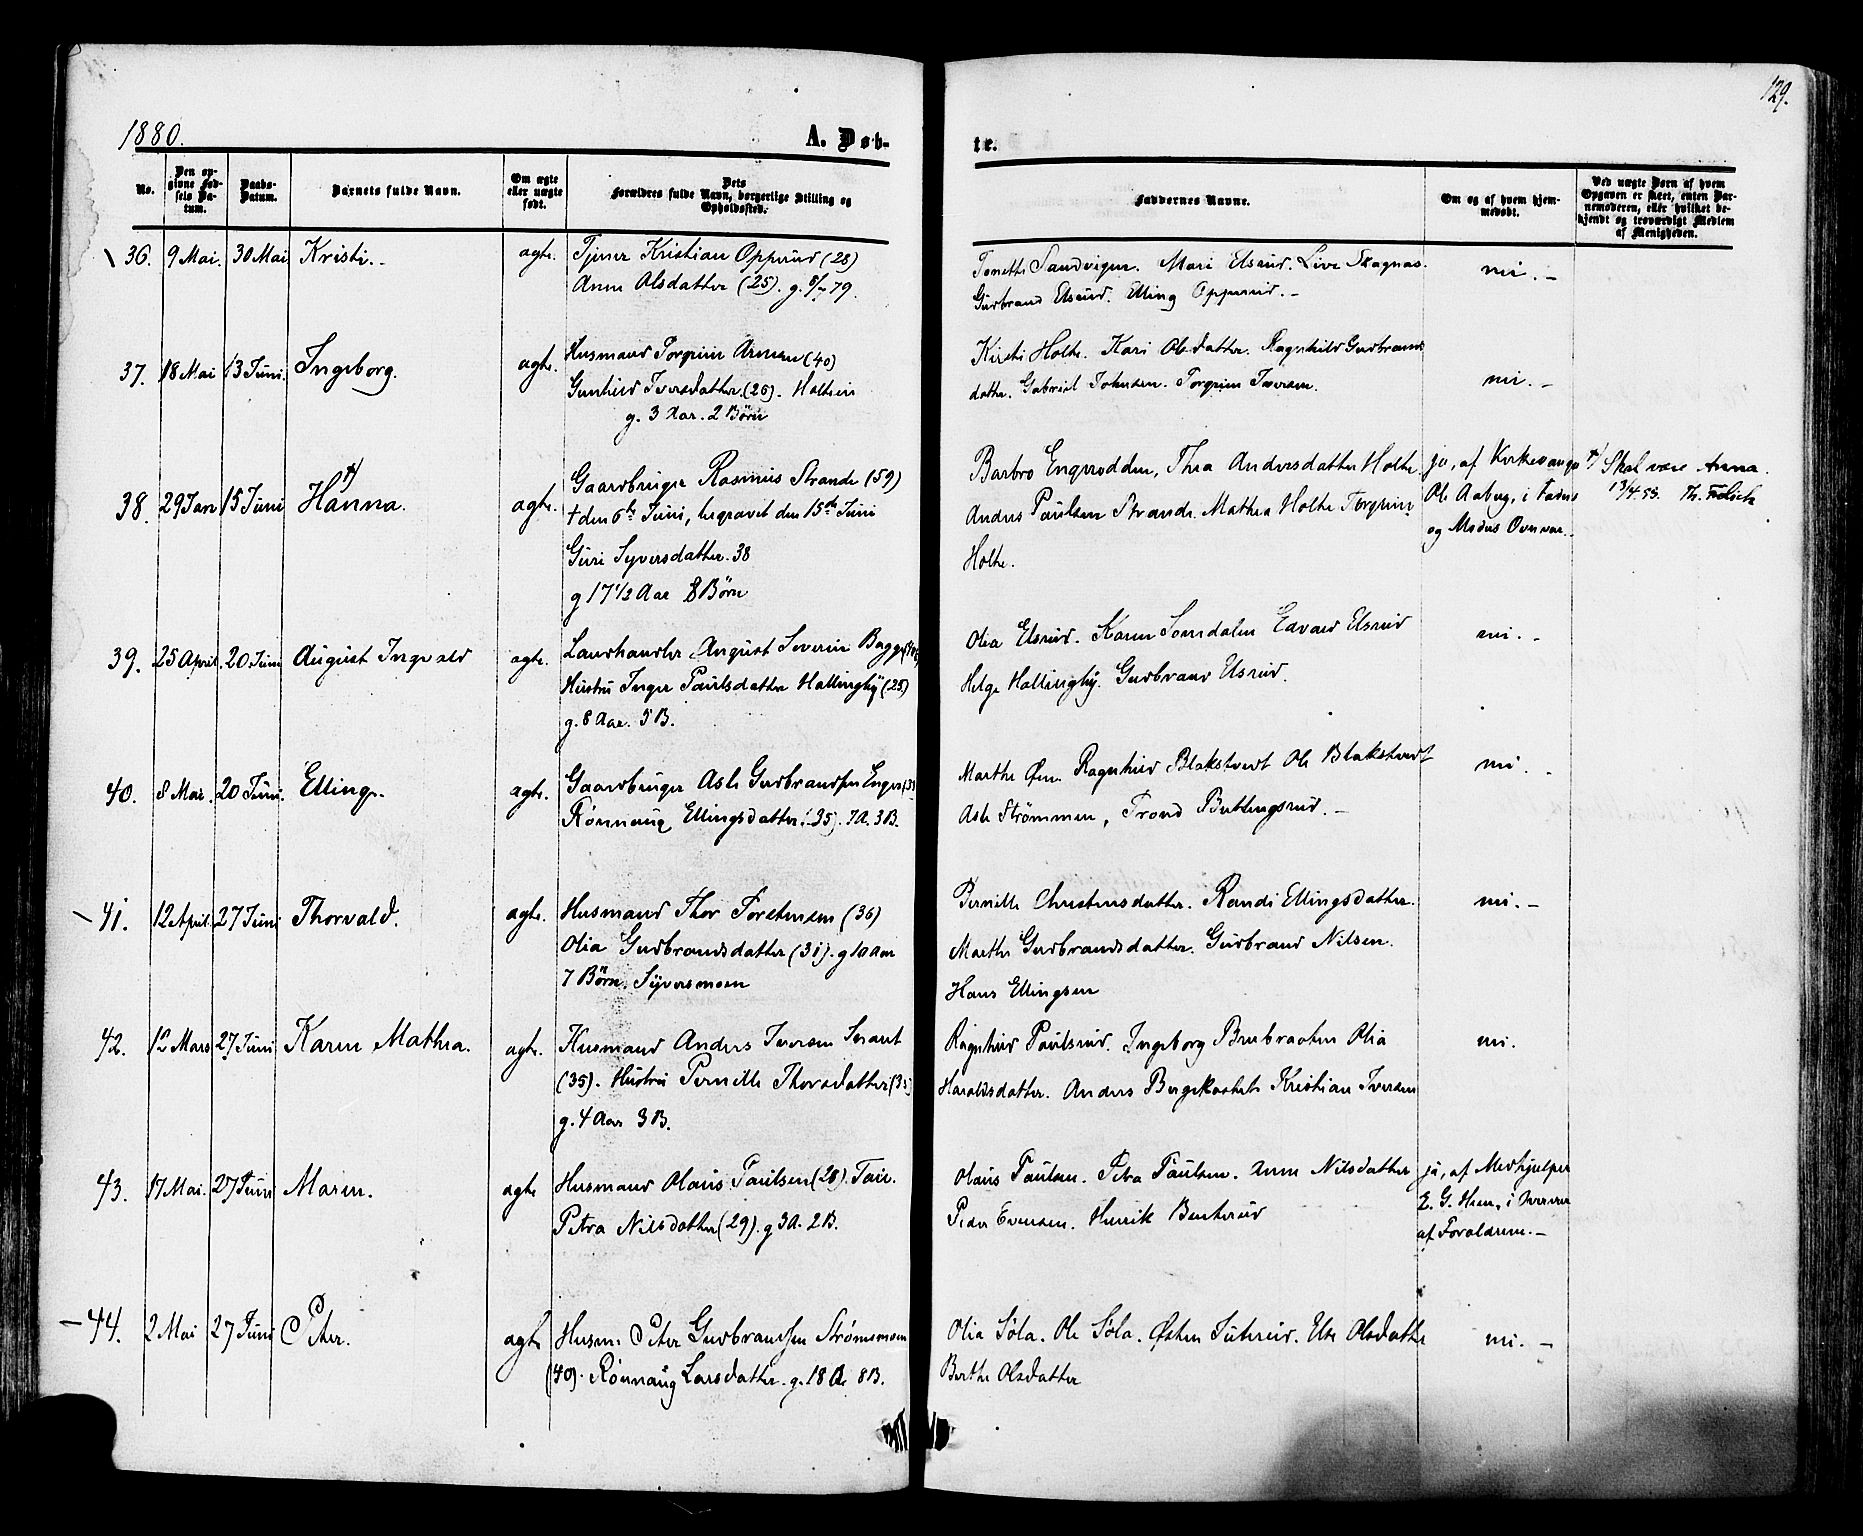 129.
1880.
A. Døb-
te.
No.
Den op-
givne Fød-
sels Da-
tum.
Daabs-
Datum.
Barnets fulde Navn.
Om ægte
eller uægte
født.
Dets
Forældres fulde Navn, borgerlige Stilling og
Opholdssted.
Faddernes Navne.
Om og af hvem hjem-
medøbt.
Ved uægte Børn af hvem
Opgaven er skeet, enten Bar-
nemoderen, eller hvilket be-
kjendt og troværdigt Medlem
af Menigheden.
36. 9 Mai. 30 Mai Kristi. agte. Tjener Kristian Opperud (28)
Anne Olsdatter (25). g. 79.
Tonette Sandvigen. Mari Elsrud. Live Skagnæs.
Gudbrand Elsrud. Elling Opperud.
nei.
37. 18 Mai 13 Juni. Ingeborg. agte. Husmand Torgrim Arnesen (40)
Gunhild Iversdatter (26). Holteeie
g. 3 Aar. 2 Børn
Kirsti Holte. Kari Olsdatter. Ragnhild Gudbrands
datter. Gabriel Johnsen. Torgrim Iversen.
nei.
38. 29 Jan 15 Juni Hanna. agte. Gaardbruger Rasmus Strande (59)
† den 6te Juni, begravet den 15de Juni
Guri Syversdatter. 38
g 17 1/2 Aar 8 Børn
Barbro Engerodden, Thea Andersdatter Holte
Anders Paulsen Strande. Mathea Holte Torgrim
Holte.
ja, af Kirkesanger
Ole Aaberg, i Faders
og Moders Overvær.
Skal være Anna.
13/4.53. Th.
39. 25 April. 20 Juni August Ingvald agte. Landhandler August Severin Bagge
Hustru Inger Paulsdatter Hallingby (25)
g. 8 Aar. 5 B.
Olia Elsrud. Karen Somdalen Edvard Elsrud
Helge Hallingby. Gudbrand Elsrud.
nei.
40. 8 Mar. 20 Juni. Elling. agte. Gaardbruger Asle Gudbrandsen Enger
Rønnaug Ellingsdatter (35). 7 A. 3 B.
Marthe Øen. Ragnhild Blakstvedt Ole Blakstvedt
Asle Strømmen, Trond Buttingsrud.
nei.
41. 12 April. 27 Juni Thorvald. agte. Husmand Thor Torstensen (36)
Olia Gudbrandsdatter (31). g 10 Aar
7 Børn. Syversmoen
Pernille Christensdatter. Randi Ellingsdatter.
Marthe Gudbrandsdatter. Gudbrand Nilsen.
Hans Ellingsen
nei.
42. 12 Mars 27 Juni Karen Mathea. agte. Husmand Anders Iversen
(35). Hustru Pernille Thorsdatter (35)
g. 4 Aar 3 B.
Ragnhild Paulsrud. Ingeborg Brubraaten Olia
Haraldsdatter. Anders Bergekastet Kristian Iversen
nei.
43. 17 Mai. 27 Juni Maren. agte Husmand Olaus Paulsen (28).
Petra Nilsdatter (29). g 3 A. 2 B.
Olaus Paulsen. Petra Paulsen. Anne Nilsdatter
Peder Evensen. Henrik Benterud
ja, af Medhjælper
E. G. Hsen, i Nærvær
af Forældrene.
44. 2 Mai 27 Juni Peter. agte Husm: Peter Gudbrandsen Strømsmoen
(40). Rønnaug Larsdatter. g. 18 A. 8 B.
Olia Søla. Ole Søla. Østen Juterud. Else Olsdatter
Berthe Olsdatter
nei.